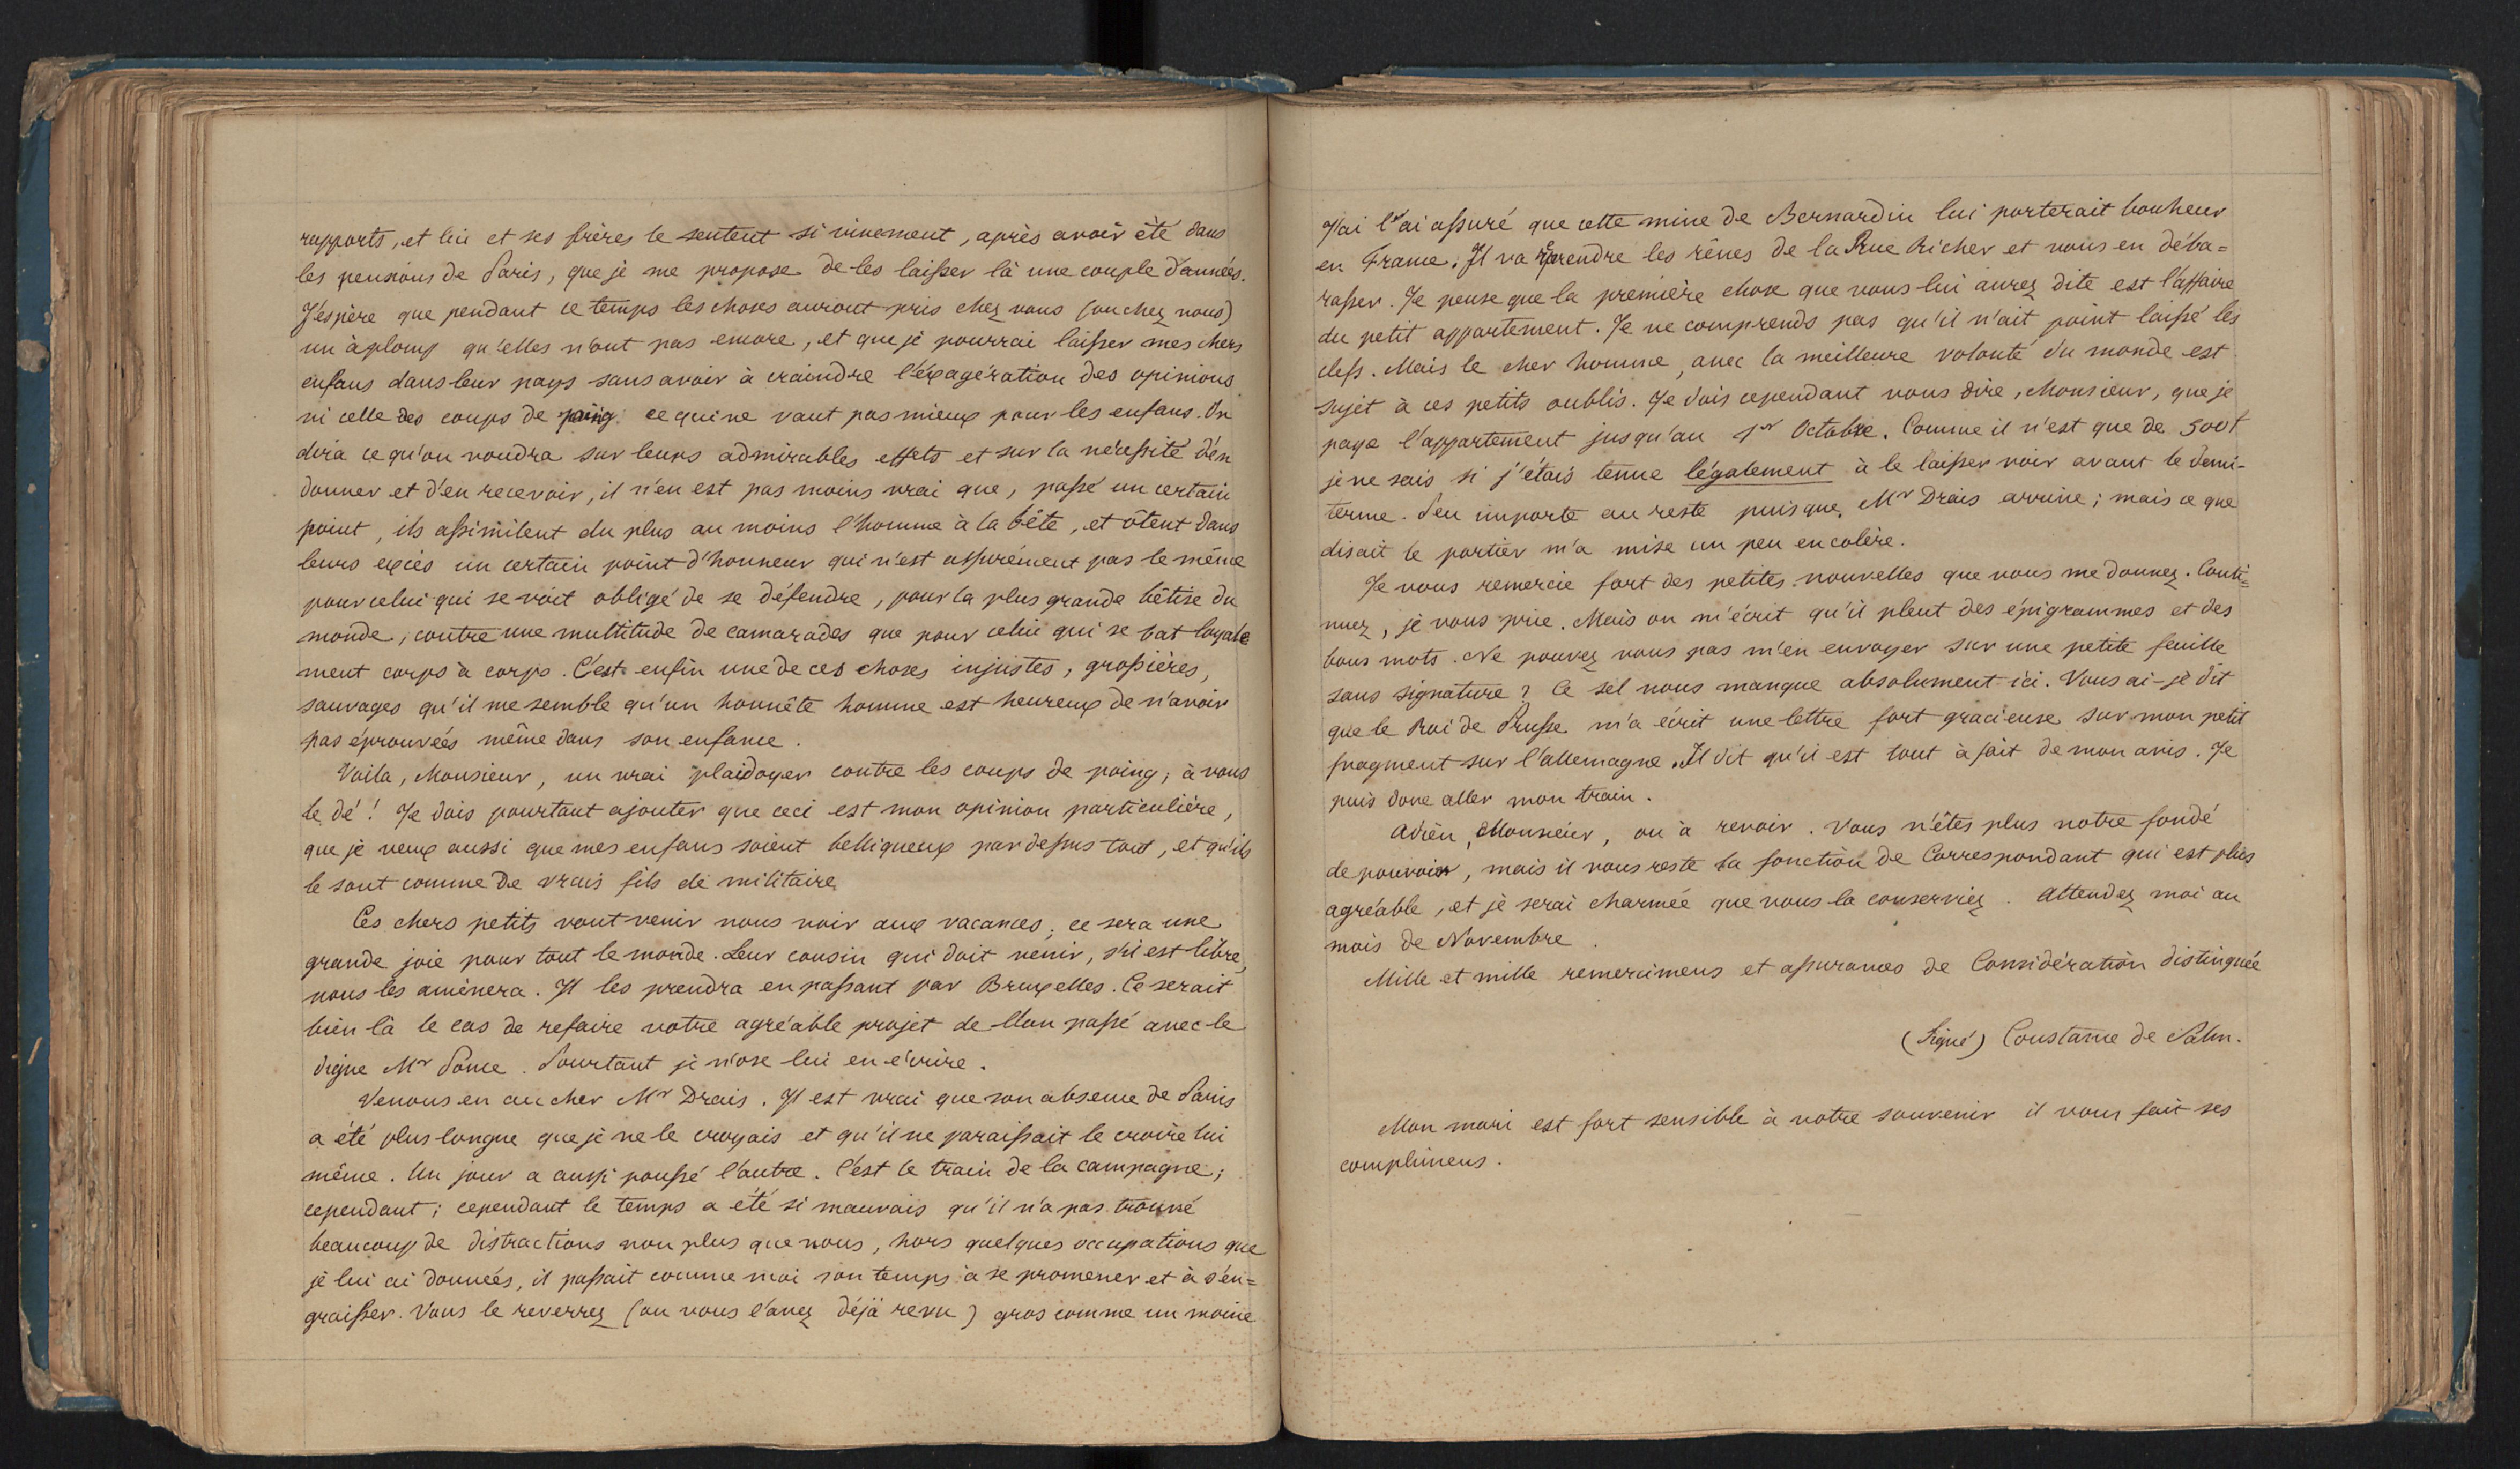 rapports, et lui et ses frères le sentent si vivement, après avoir été dans
les pensions de Paris, que je me propose de les laisser là une couple d'années.
J'espère que pendant ce temps les choses auront pris chez vous (ou chez nous)
un àplomp qu'elles n'ont pas encore, et que je pourrai laisser mes chers
enfans dans leur pays sans avoir à craindre l'éxagération des opinions
ni celle des coups de poing ce qui ne vaut pas mieux pour les enfans. On
dira ce qu'on voudra sur leurs admirables effets et sur la nécessité d'en
donner et d'en recevoir, il n'en est pas moins vrai que, passé un certain
point, ils assimilent du plus au moins l'homme à la bête, et ôtent dans
leurs excès un certain point d'honneur qui n'est assurément pas le même
pour celui qui se voit obligé de se défendre, pour la plus grande bêtise du
monde, contre une multitude de camarades que pour celui qui se bat loyale
ment corps à corps. C'est enfin une de ces choses injustes, grossières,
sauvages qu'il me semble qu'un honnête homme est heureux de n'avoir
pas éprouvées même dans son enfance.
Voila, Monsieur, un vrai plaidoyer contre les coups de poing; à vous
le dé! Je dois pourtant ajouter que ceci est mon opinion particulière,
que je veux aussi que mes enfans soient belliqueux par dessus tout, et qu'ils
le sont comme de vrais fils de militaire
Ces chers petits vont venir nous voir aux vacances; ce sera une
grande joie pour tout le monde. Leur cousin qui doit venir, s'il est libre,
nous les amènera. Il les prendra en passant par Bruxelles. Ce serait
bien là le cas de refaire votre agréable projet de l'an passé avec le
digne Mr Ponce. Pourtant je n'ose lui en écrire.
Venons en au cher Mr Drais. Il est vrai que son absence de Paris
a été plus longue que je ne le croyais et qu'il ne paraissait le croire lui
même. Un jour a aussi poussé l'autre. C'est le train de la campagne;
cependant; cependant le temps a été si mauvais qu'il n'a pas trouvé
beaucoup de distractions non plus que nous, hors quelques occupations que
je lui ai données, il passait comme moi son temps à se promener et à s'en=
graisser. Vous le reverrez (ou vous l'avez déjà revu) gros comme un moine
J'ai l'ai assuré que cette mine de Bernardin lui porterait bonheur
en France. Il va reprendre les rênes de la Rue Richer et vous en déba=
rasser. Je pense que la première chose que vous lui aurez dite est l'affaire
du petit appartement. Je ne comprends pas qu'il n'ait point laissé les
clefs. Mais le cher homme, avec la meilleure volonté du monde est
sujet à ces petits oublis. Je dois cependant vous dire, Monsieur, que je
paye l'appartement jusqu'au 1er Octobre. Comme il n'est que de 500f
je ne sais si j'étais tenue légalement à le laisser voir avant le demi-
terme. Peu importe au reste puisque Mr Drais arrive; mais ce que
disait le portier m'a mise un peu en colère.
Je vous remercie fort des petites nouvelles que vous me donnez. Conti=
nuez, je vous prie. Mais on m'écrit qu'il pleut des épigrammes et des
bons mots. Ne pouvez vous pas m'en envoyer sur une petite feuille
sans signature? Ce sel nous manque absolument ici. Vous ai-je dit
que le Roi de Prusse m'a écrit une lettre fort gracieuse sur mon petit
fragment sur l'allemagne. Il dit qu'il est tout à fait de mon avis. Je
puis donc aller mon train.
Adieu, Monsieur, ou à revoir. Vous n'êtes plus notre fondé
de pouvoir, mais il vous reste la fonction de Correspondant qui est plus
agréable, et je serai charmée que vous la conserviez. Attendez moi au
mois de Novembre.
Mille et mille remercimens et assurances de Considération distinguée
(Signé) Constance de Salm.
Mon mari est fort sensible à votre souvenir il vous fait ses
complimens.